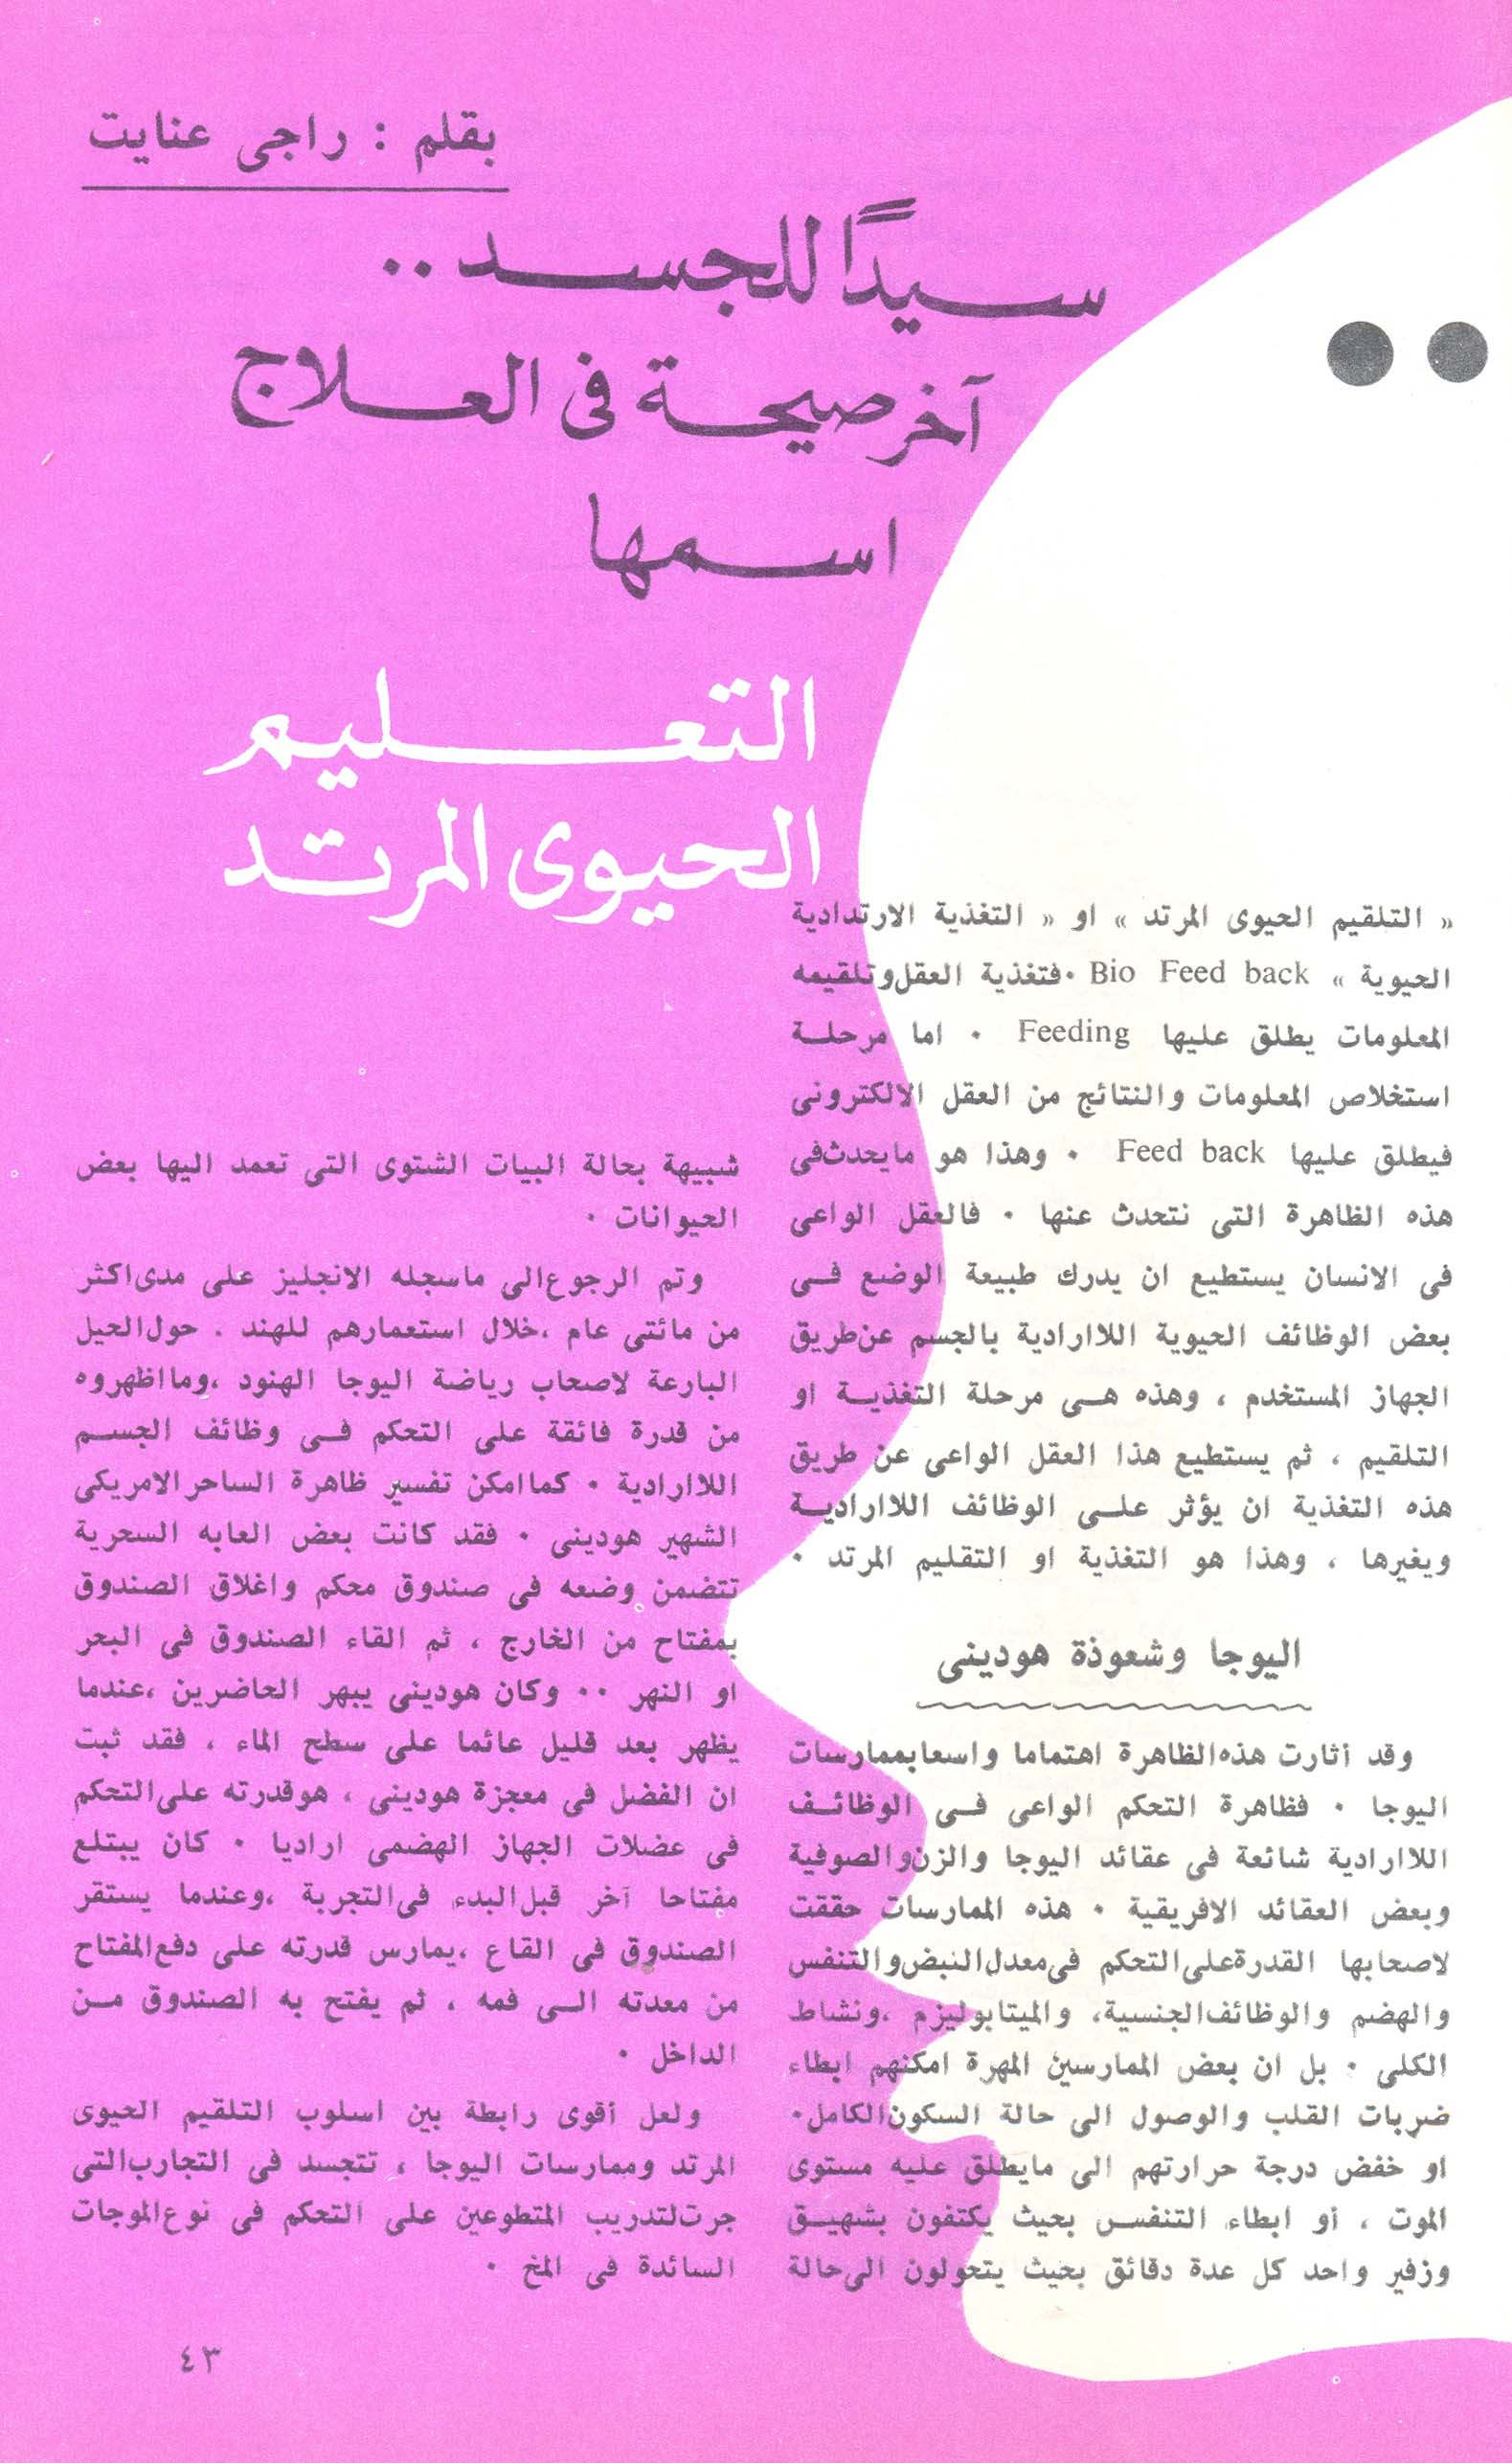 بقلم : راجى عنايت
سيدًا للجسد ..
آخر صيحة فى العلاج
اسمها
التعليم
الحيوى المرتد
« التلقيم الحيوى المرتد » او « التغذية الارتدادية
الحيوية » Bio Feed back ٠ فتغذية العقل وتلقيمه
المعلومات يطلق عليها Feeding ٠ اما مرحلة
استخلاص المعلومات والنتائج من العقل الالكترونى
فيطلق عليها Feed back ٠ وهذا هو مايحدث فى
هذه الظاهرة التى نتحدث عنها ٠ فالعقل الواعى
فى الانسان يستطيع ان يدرك طبيعة الوضع فى
بعض الوظائف الحيوية اللاارادية بالجسم عن طريق
الجهاز المستخدم ، وهذه هى مرحلة التغذية او
التلقيم ، ثم يستطيع هذا العقل الواعى عن طريق
هذه التغذية ان يؤثر على الوظائف اللاارادية
ويغيرها ، وهذا هو التغذية او التقليم المرتد ٠
اليوجا وشعوذة هودينى
وقد أثارت هذه الظاهرة اهتماما واسعا بممارسات
اليوجا ٠ فظاهرة التحكم الواعى فى الوظائف
اللاارادية شائعة فى عقائد اليوجا والزن والصوفية
وبعض العقائد الافريقية ٠ هذه الممارسات حققت
لاصحابها القدرة على التحكم فى معدل النبض والتنفس
والهضم والوظائف الجنسية، والميتابوليزم ،ونشاط
الكلى ٠ بل ان بعض الممارسين المهرة امكنهم ابطاء
ضربات القلب والوصول الى حالة السكون الكامل٠
او خفض درجة حرارتهم الى مايطلق عليه مستوى
الموت ، أو ابطاء التنفس بحيث يكتفون بشهيق
وزفير واحد كل عدة دقائق بحيث يتحولون الى حالة
شبيهة بحالة البيات الشتوى التى تعمد اليها بعض
الحيوانات ٠
وتم الرجوع الى ماسجله الانجليز على مدى اكثر
من مائتى عام ،خلال استعمارهم للهند . حول الحيل
البارعة لاصحاب رياضة اليوجا الهنود ،وما اظهروه
من قدرة فائقة على التحكم فى وظائف الجسم
اللاارادية ٠ كما امكن تفسير ظاهرة الساحر الامريكى
الشهير هودينى ٠ فقد كانت بعض العابه السحرية
تتضمن وضعه فى صندوق محكم واغلاق الصندوق
بمفتاح من الخارج ، ثم القاء الصندوق فى البحر
او النهر ٠٠ وكان هودينى يبهر الحاضرين ،عندما
يظهر بعد قليل عائما على سطح الماء ، فقد ثبت
ان الفضل فى معجزة هودينى ، هو قدرته على التحكم
فى عضلات الجهاز الهضمى اراديا ٠ كان يبتلع
مفتاحا آخر قبل البدء فى التجربة ،وعندما يستقر
الصندوق فى القاع ،يمارس قدرته على دفع المفتاح
من معدته الى فمه ، ثم يفتح به الصندوق من
الداخل ٠
ولعل أقوى رابطة بين اسلوب التلقيم الحيوى
المرتد وممارسات اليوجا ، تتجسد فى التجارب التى
جرت لتدريب المتطوعين على التحكم فى نوع الموجات
السائدة فى المخ ٠
٤٣